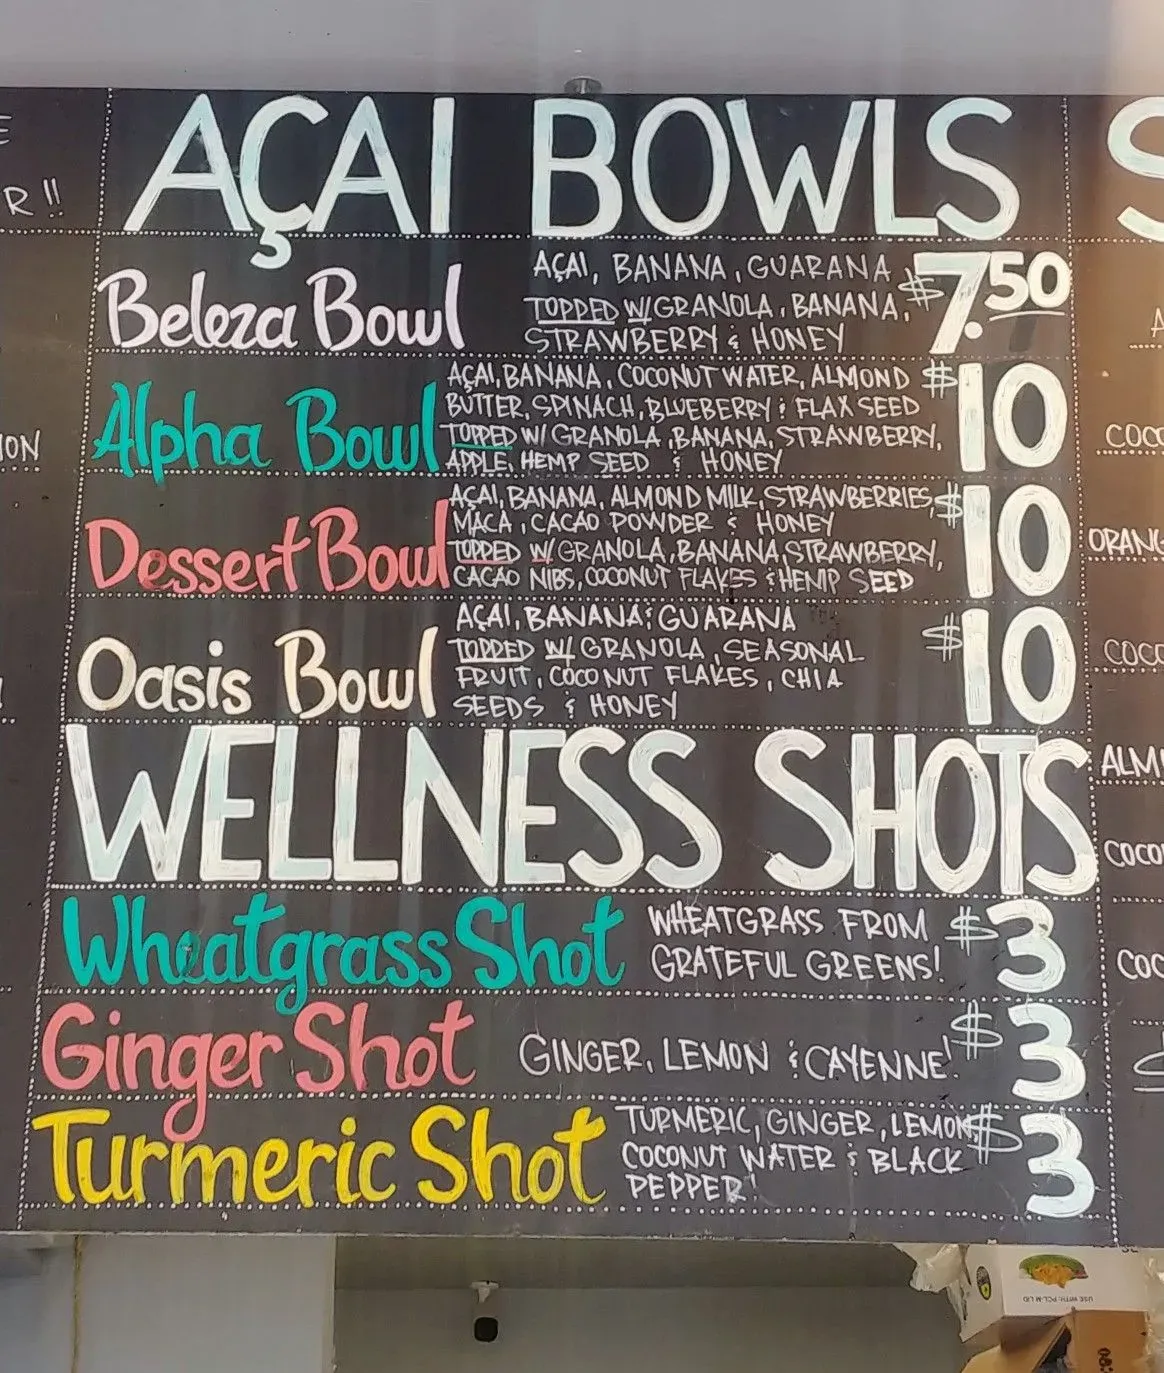 AÇAI BOWLS
Beleza Bowl
AÇAI, BANANA, GUARANA
TOPPED W/ GRANOLA, BANANA,
STRAWBERRY & HONEY
$7.50
Alpha Bowl
AÇAI, BANANA, COCONUT WATER, ALMOND
BUTTER, SPINACH, BLUEBERRY & FLAX SEED
TOPPED W/ GRANOLA, BANANA, STRAWBERRY,
APPLE, HEMP SEED & HONEY
$10
Dessert Bowl
AÇAI, BANANA, ALMOND MILK, STRAWBERRIES,
MACA, CACAO POWDER & HONEY
TOPPED W/ GRANOLA, BANANA, STRAWBERRY,
CACAO NIBS, COCONUT FLAKES & HEMP SEED
$10
Oasis Bowl
AÇAI, BANANA & GUARANA
TOPPED W/ GRANOLA, SEASONAL
FRUIT, COCONUT FLAKES, CHIA
SEEDS & HONEY
$10
WELLNESS SHOTS
Wheatgrass Shot
WHEATGRASS FROM
GRATEFUL GREENS!
$3
Ginger Shot
GINGER, LEMON & CAYENNE!
$3
Turmeric Shot
TURMERIC, GINGER, LEMON,
COCONUT WATER & BLACK
PEPPER!
$3